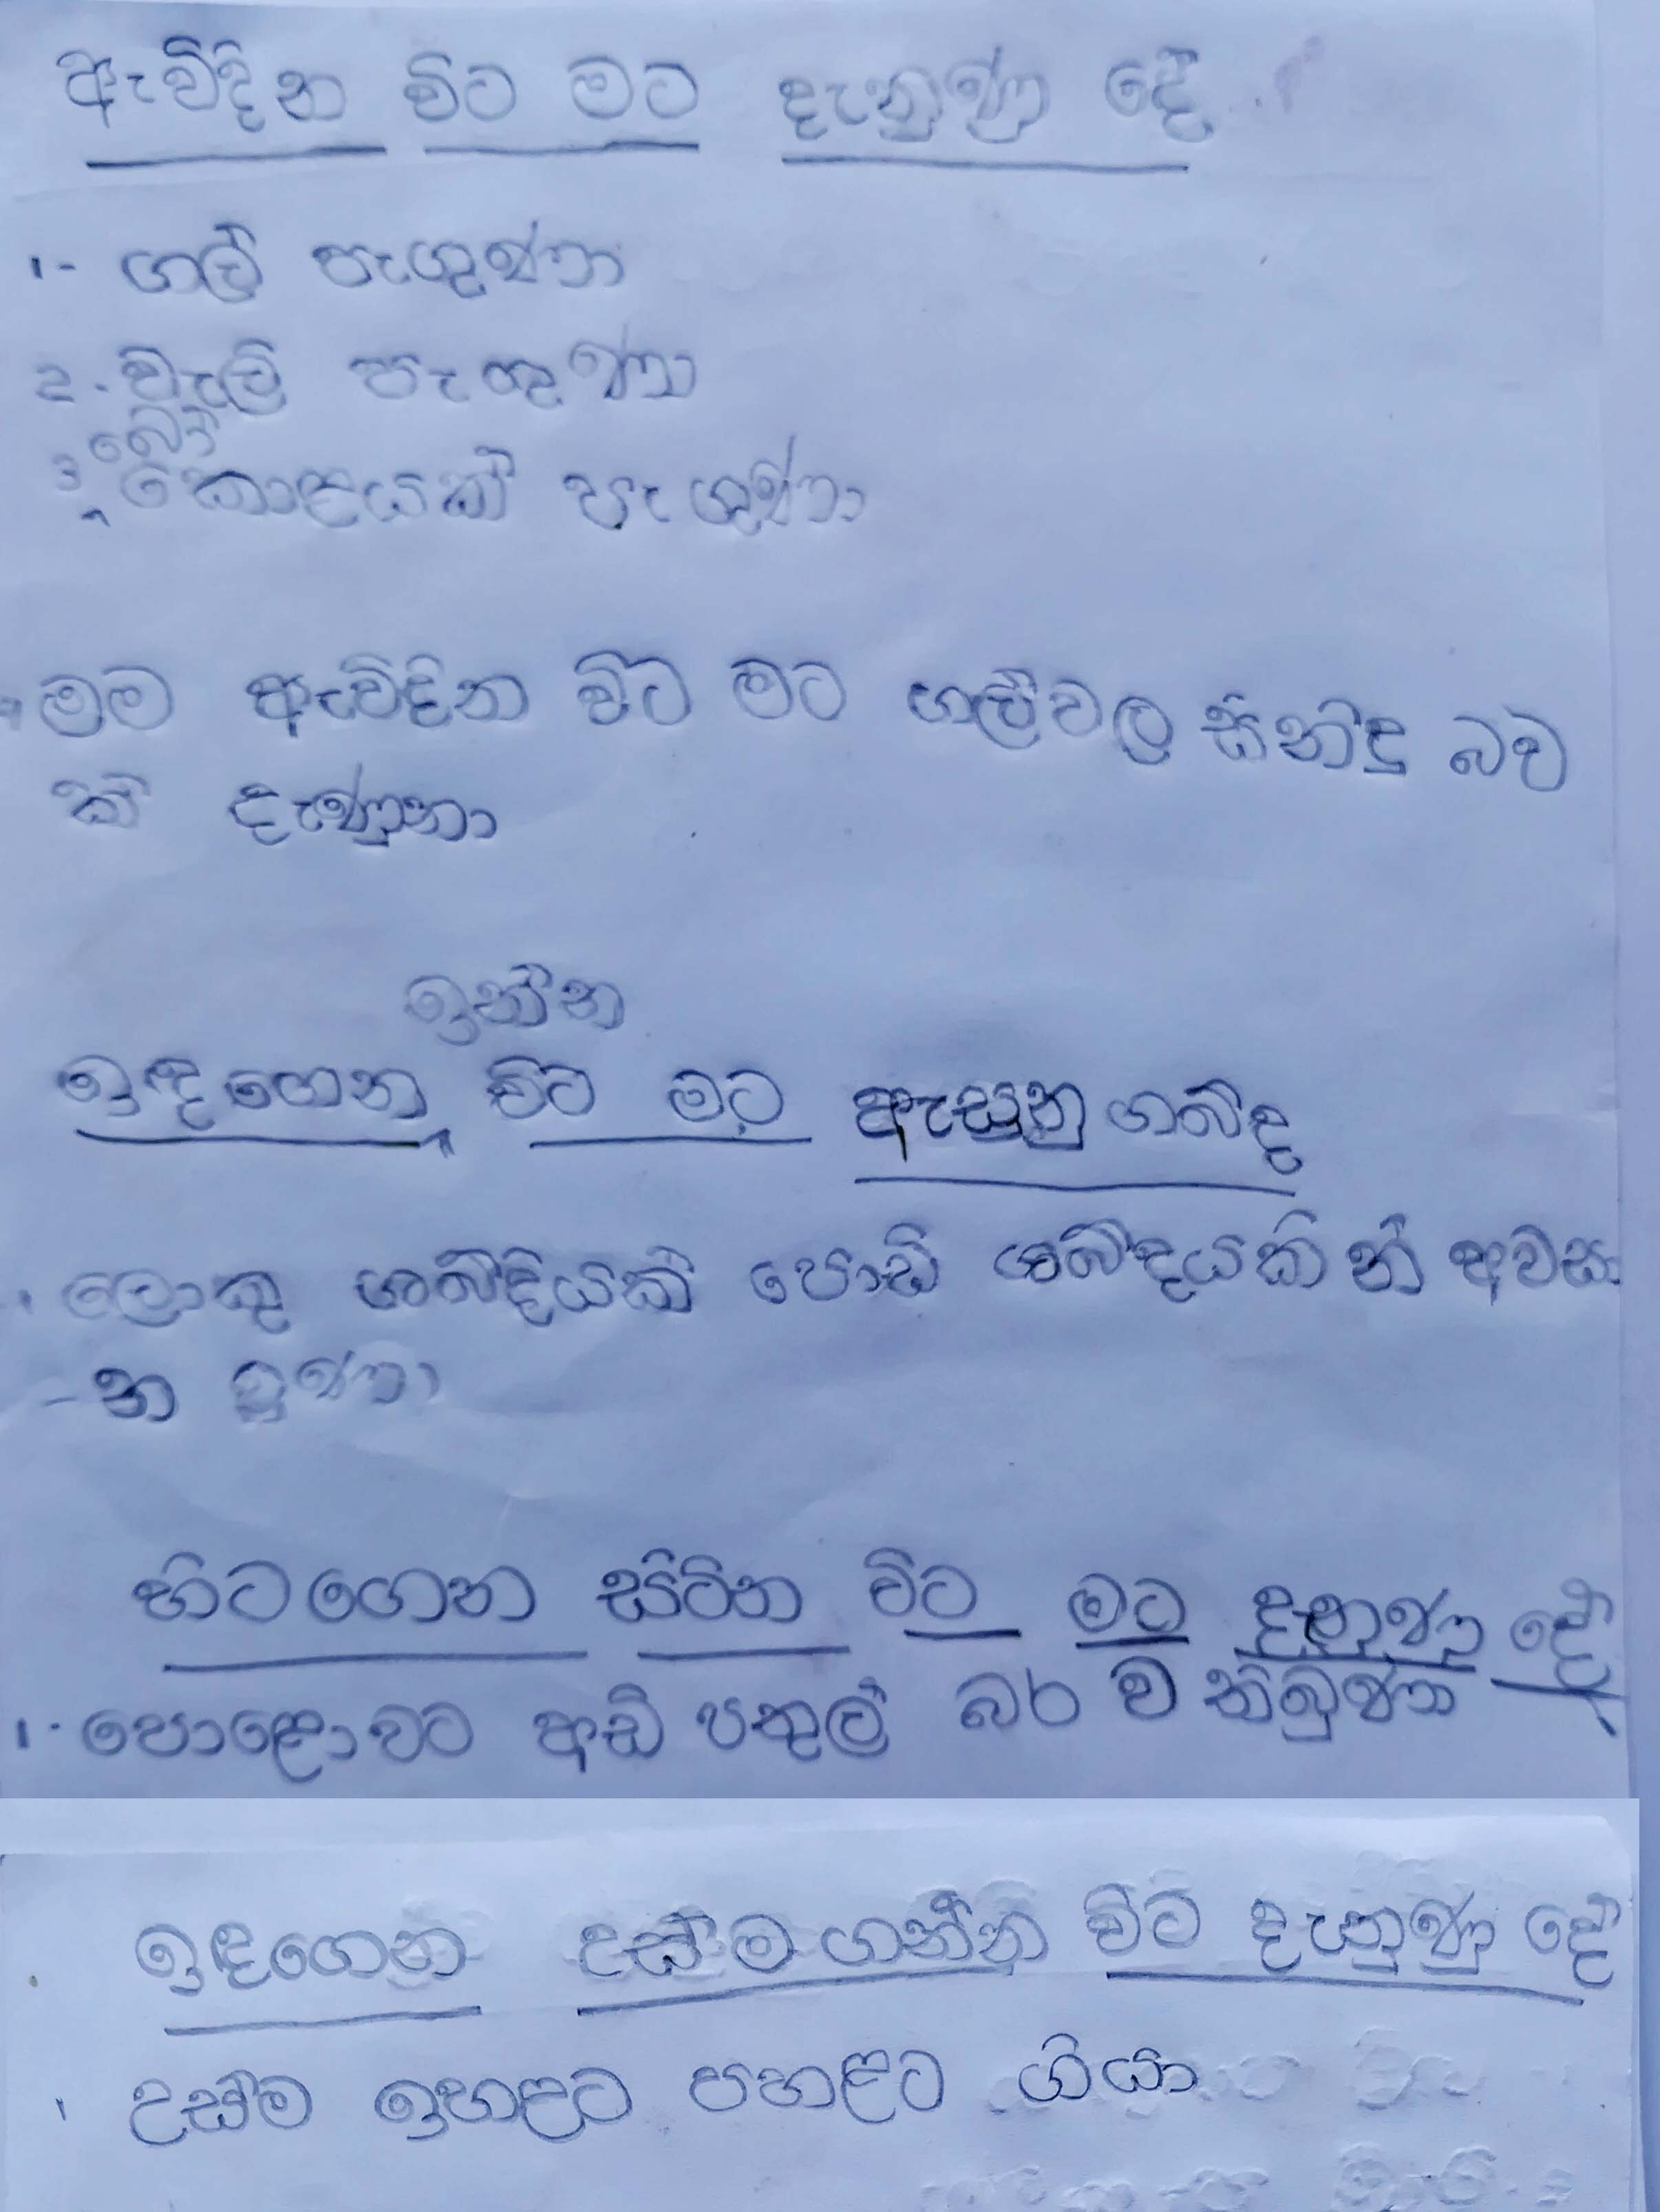 ඇවිදින විට මට දැනුණු දේ
1- ගල් පෑගුණා
2. වැලි පෑගුණා
බෝ
3 කොළයක් පෑගුණා
මම ඇවිදින විට මට ගල්වල සිනිඳු බව
ක් දැණුනා
ඉන්න
ඉඳගෙන විට මට ඇසුනු ශබ්ද
ලොකු ශබ්දියක් පොඩි ශබ්දයකින් අවසා
-න වුණා
හිටගෙන සිටින විට මට දැනුණු දේ
1. පොළොවට අඩි පතුල් බර ව තිබුණා
ඉඳගෙන උස්ම ගන්න විට දැනුණු දේ
උස්ම ඉහළට පහළට ගියා